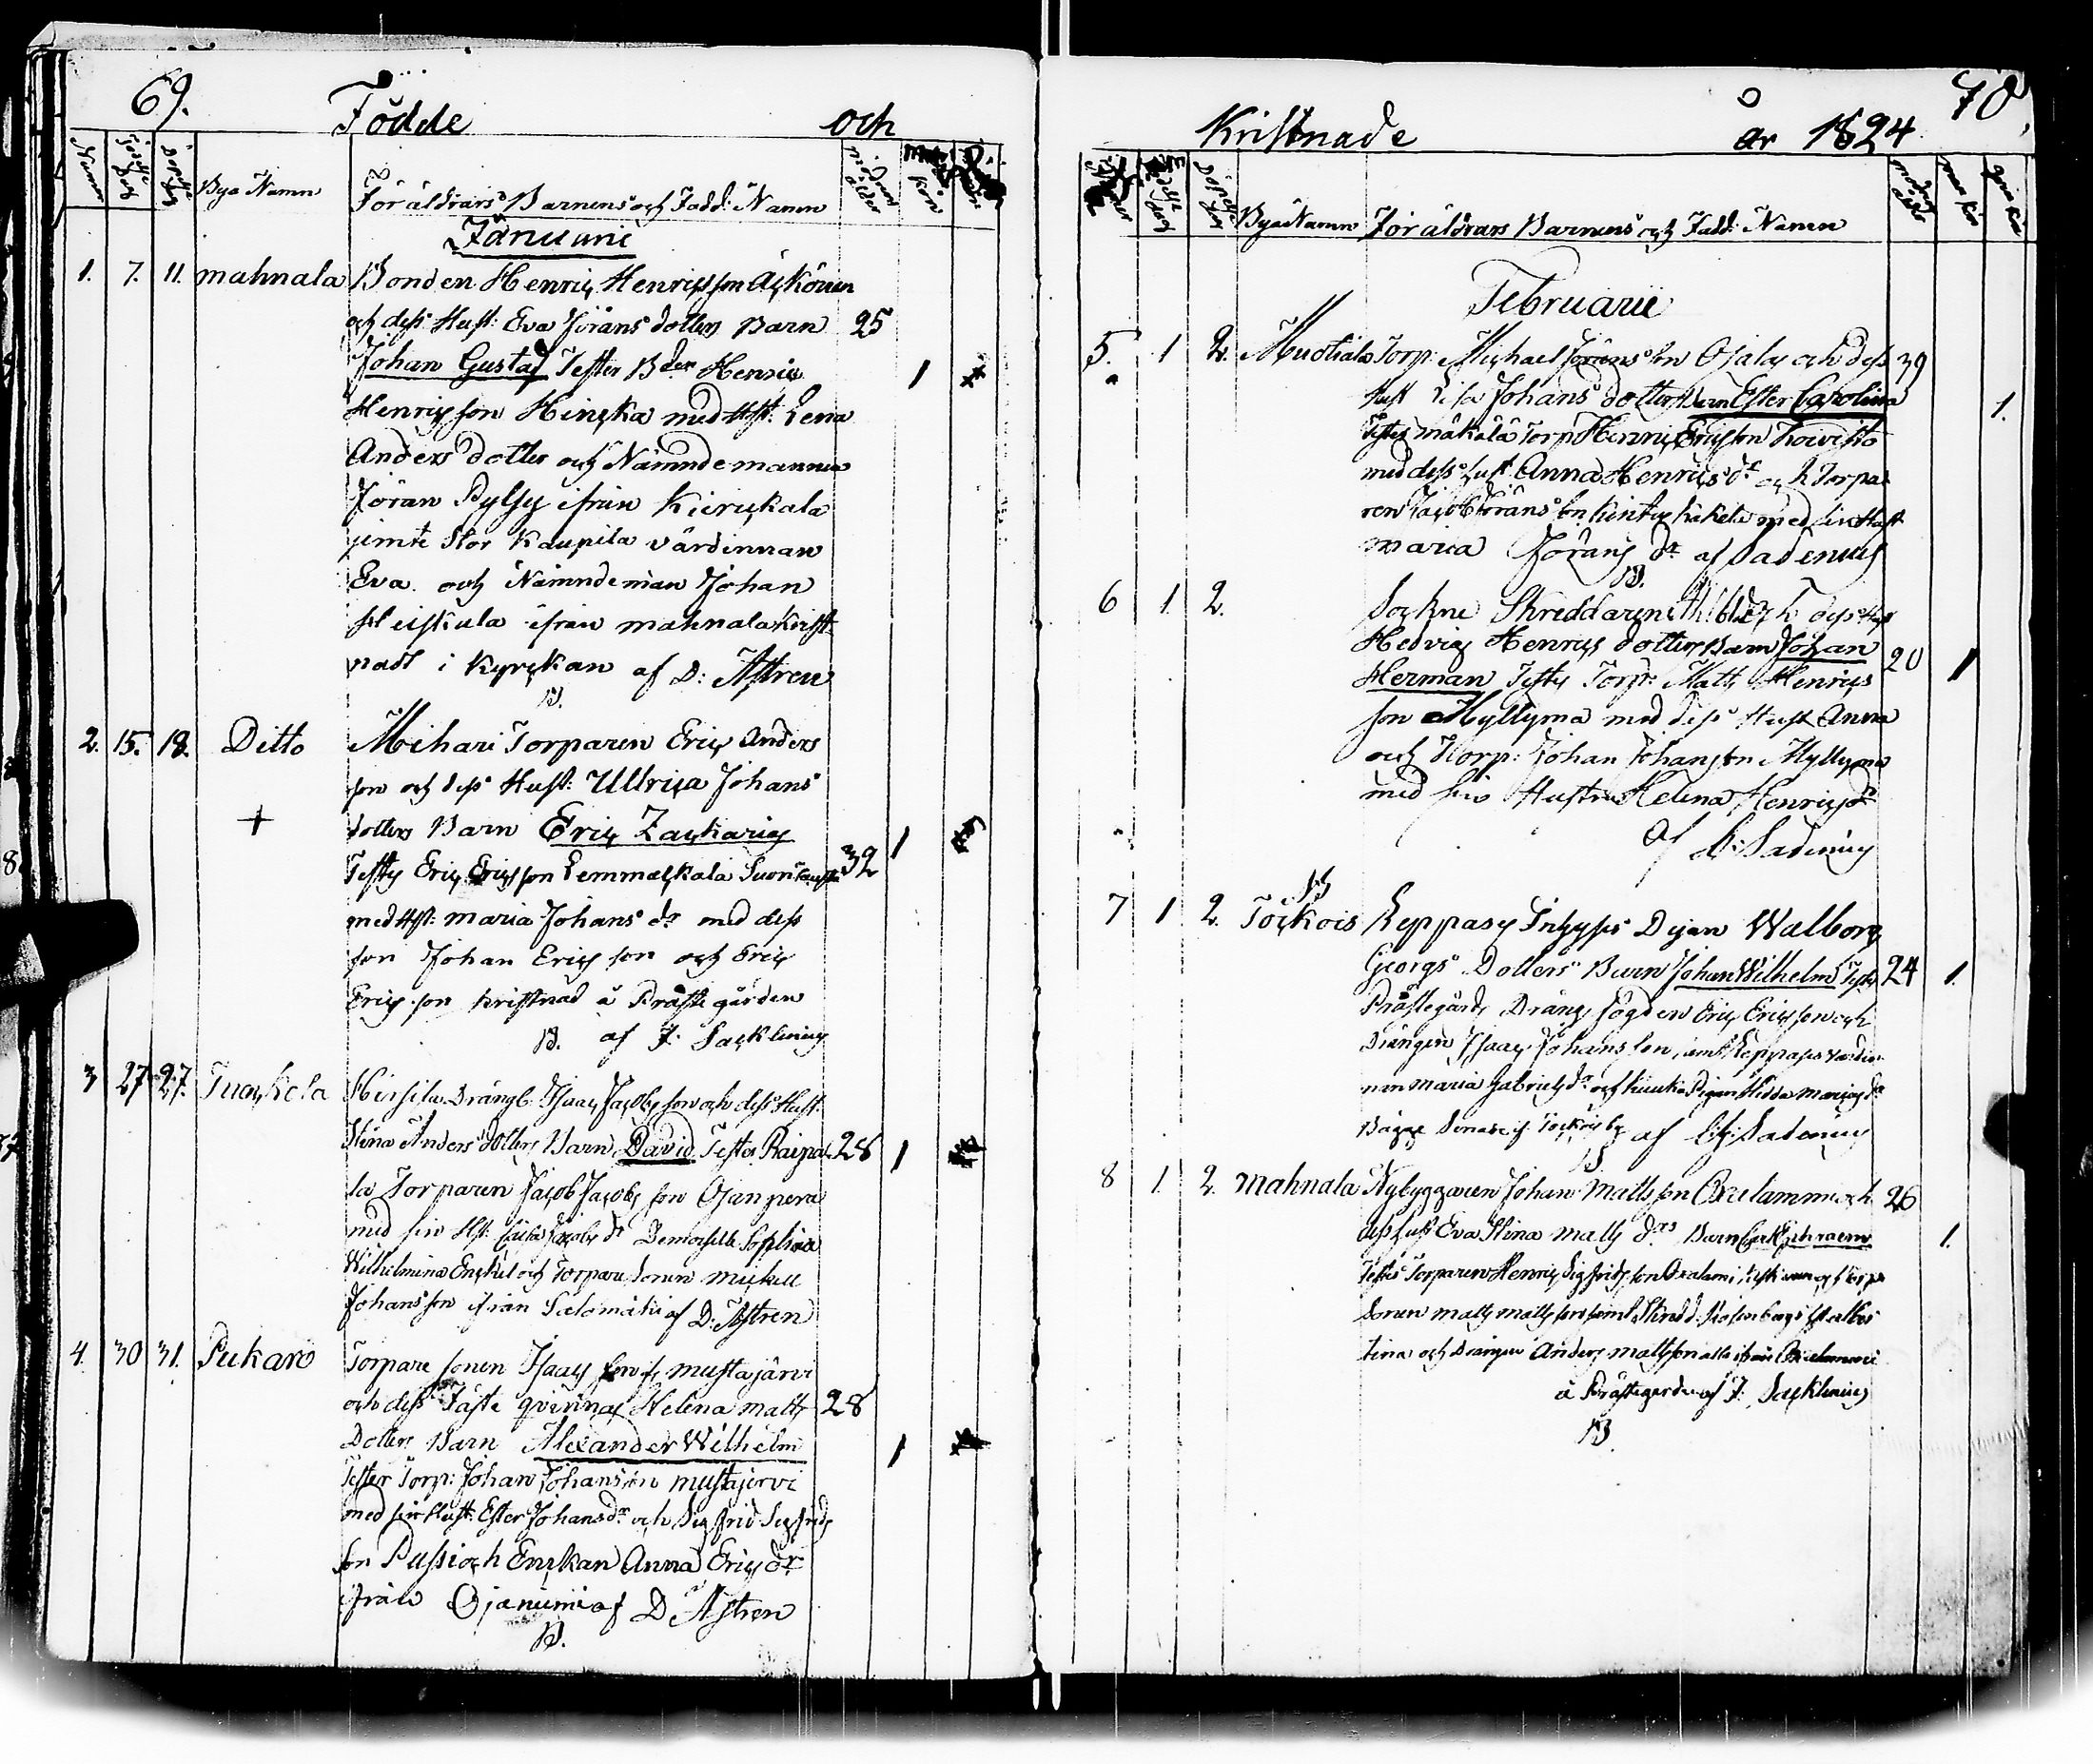 69.
Födde och
Numer Födelse Dag Döpelse Dag Bya Namn Föräldrars Barnens och Fadd: Namn Modrens ålder Kön
Januarii
1. 7. 11. Mahnala Bonden Henric Henricsson
och dess Hust: Eva Jörans dotters Barn 25
Johan Gustaf Tester Bden Henric 1
Henricsson Hincka med Hst: Lena
Anders dotter och Nämndemannen
Jöran Pylsy ifrån Kierickala
jemte Stor Kaupila värdinnan
Eva och Nämndeman Johan
Heiskala ifrån Mahnala Krist-
nadt i Kyrckan af D: Astren
B.
2. 15. 18. Ditto Mihari Torparen Eric Anders
son och dess Hust: Ullrica Johans
+ dotters Barn Eric Zacharias 1
Testes Eric Ericsson Lemmackala 32
med Hst: Maria Johans dr med dess
son Johan Ericsson och Eric
Ericsson Kristnad å Prästegården
B. af J: Sacklinius
3 27 27. Hirsilä Drängl: Isaac Jacobsson och dess Hust:
Stina Anders dotters Barn David Testes 28 1
la Torparen Jacob Jacobsson Ojanpera
med sin Hst: Jacobs dr Demoiselle Sophia
Wilhelmina Enckel och Torpare Sonen Mickell
Johansson ifrån Salomäki af D: Astren
4. 30 31. Pukaro Torpare sonen Isaac Mustajärvi
och dess Fäste qvinnas Helena Matts 28
Dotters Barn Alexander Wilhelm 1
Tester Torp: Johan Johansson Mustajervi
med sin Hust: Ester Johans dr och Sigfrid Sigfrids
son Pussi och Enckan Anna Erics dr
ifrån Ojaniemi af D Astren
B.
70
Kristnade
år 1824
Födelse dag Döpelse dag Bya Namn Föräldrars Barnens och Fadd: Namn Modrens ålder Man Kön Qvin Kön
Februarii
5. 1 2. Muotiala Torp: Michael Jöransson Ojala och dess 39
Hust Lisa Johans dotters Barn Ester Carolina 1.
Testes Mäkälä Torp Henric Ericsson Koivisto
med dess hust Anna Henrics dr och Torpa-
ren Jacob Jöransson med sin Hust
Maria Jörans dr af Sadenius
B.
6 1. 2. Sockne Skreddaren dess Hust
Hedvig Henrics dotters Barn Johan 20
Herman Testes Torp: Matts Henrics 1
son Myllymä med dess Hust Anna
och Torp: Johan Johansson Myllymä
med sin Hustru Helena Henrics dr
af Sadenius
B
7 1 2. Töckois Reppasz Inhyses Pigan Walborg
Georgs Dotters Barn Johan Wilhelm Testes 24 1.
Prästegårds Dräng fogden Eric Ericsson och
Drängen Isaac Johansson, jemt Reppases värdin-
nan Maria Gabriels dr och Pigan Hedda
af Sadenius
B
8 1. 2. Mahnala Nybyggaren Johan Mattsson Oxelammi och 26
dess hust Eva Stina Matts drs Barn Carl Ephraem 1.
Testes Torparen Henric Sigfridsson Oxalami och Torpa
Sonen Matts Mattsson samt Skredd: Rosenbergs
tina och Drängen Anders Mattsson alla ifrån Oxelammi
å Prästegården af J: Sacklinius
B.